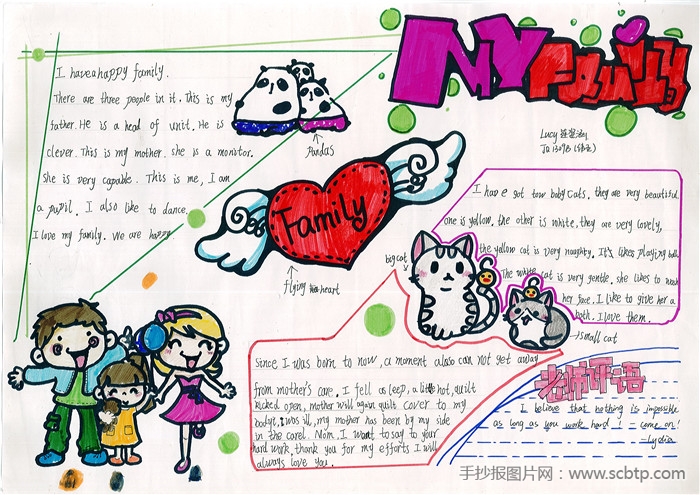 MY Family
Lucy
I have a happy family.
There are three people in it. This is my
father. He is a head of unit. He is
clever. This is my mother. she is a monitor.
she is very capable. This is me, I am
a pupil. I also like to dance.
I love my family. We are happy
Pandas
Family
flying heart
I have got tow baby cats. they are very beautiful
one is yellow. the other is white, they are very lovely,
the yellow cat is very naughty. It's likes playing ball
The white cat is very gentle. she likes to wash
her face. I like to give her a
bath. I love them.
big cat
small cat
since I was born to now, a moment also can not get away
from mother's care. I fell as leep, a little hot, quilt
kicked open, mother will again quilt cover to my
body. I was ill, my mother has been by my side
in the care. Now, I want to say to your
hard work, thank you for my efforts I will
always love you.
老师评语
I believe that nothing is impossible
as long as you work hard! come on!
-Lydia
手抄报图片网:www.scbtp.com